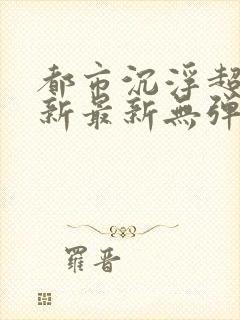 都市沉浮超
新最新無彈
羅晋